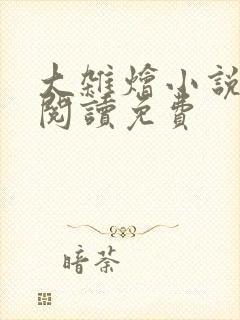 大雜燴小説
閱讀免費
暗荼